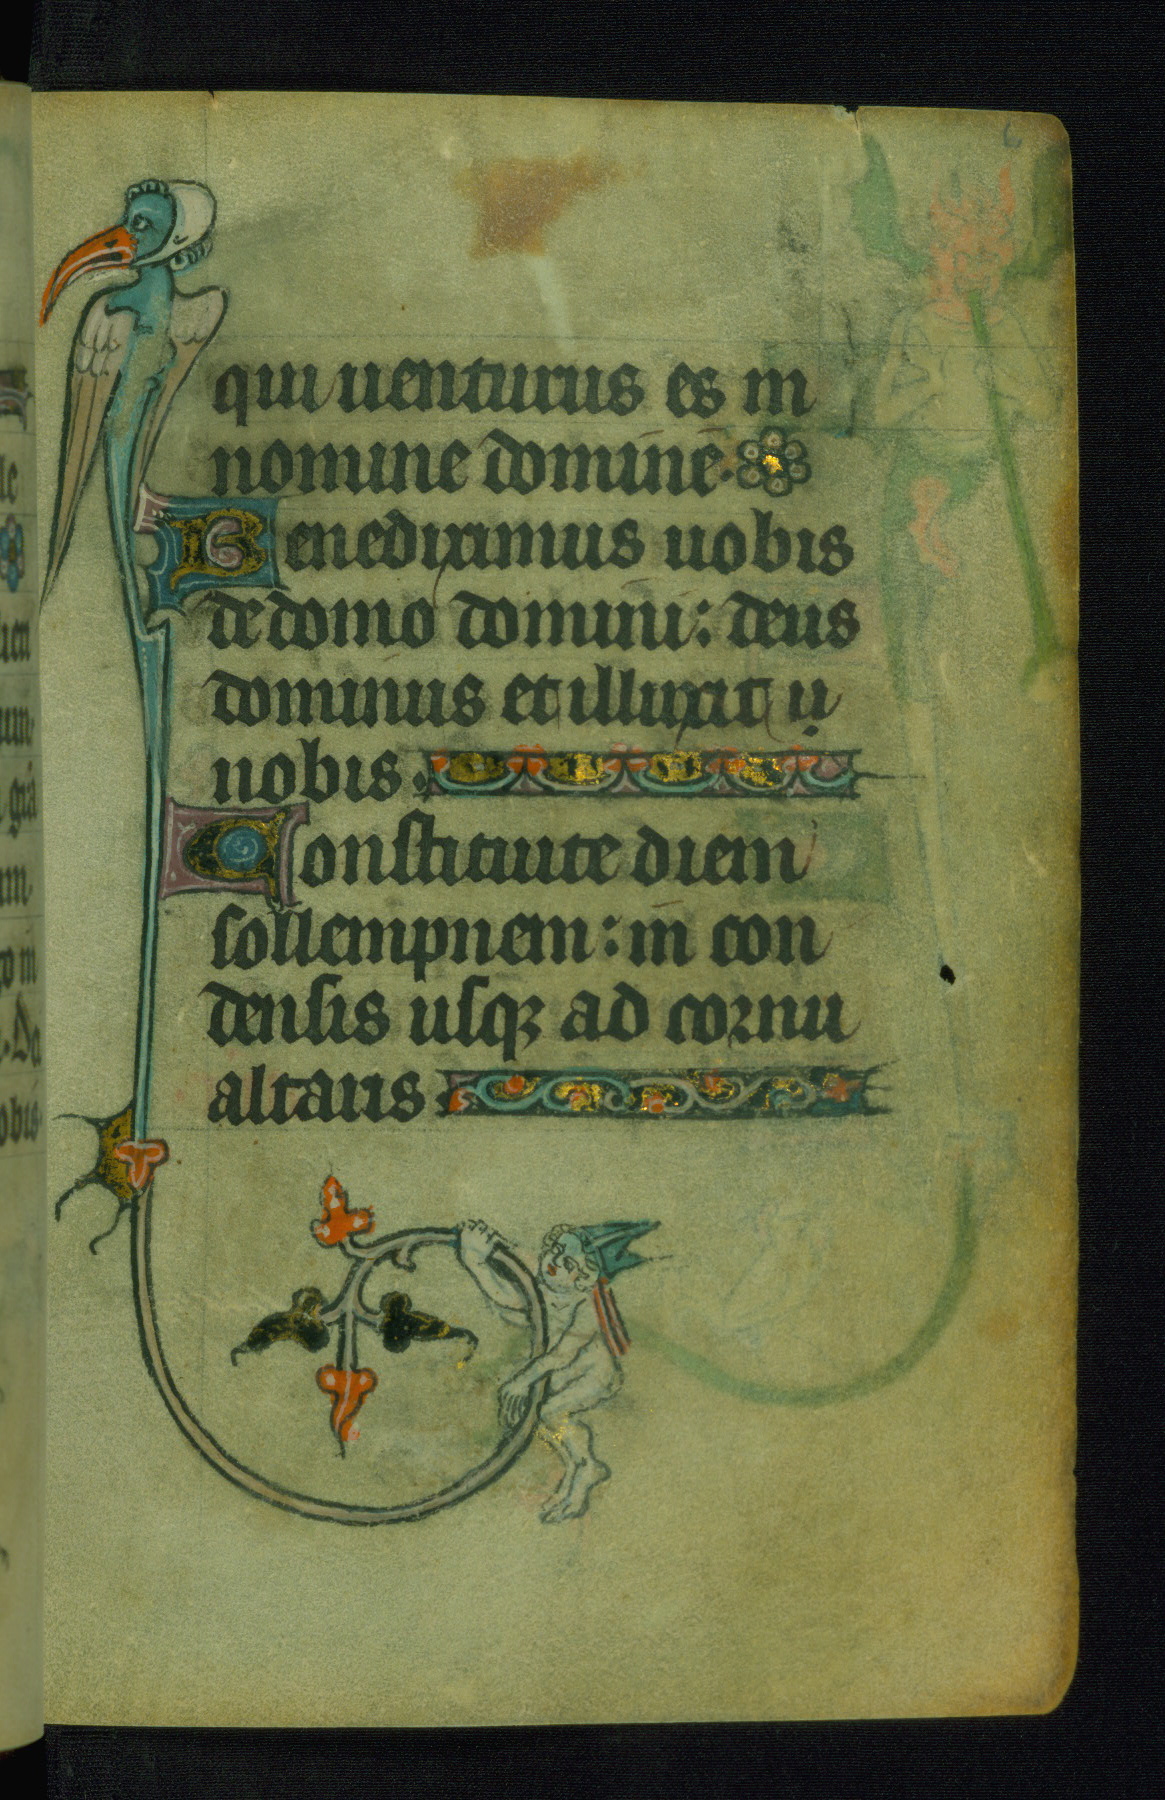 qui uenturus es in
nomine domine
Benediximus uobis
de domo domini: deus
dominus et illuxit u
nobis.
Constituite diem
sollempnem: in con
densis usq ad cornu
altaris